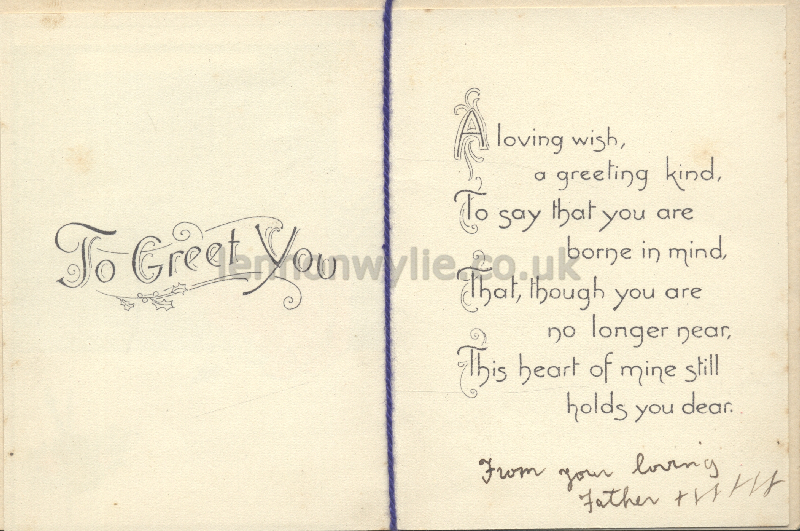 To Greet You
lennonwylie.co.uk
A loving wish,
a greeting kind,
To say that you are
borne in mind,
That, though you are
no longer near,
This heart of mine still
holds you dear.
From your loving
Father +++++++